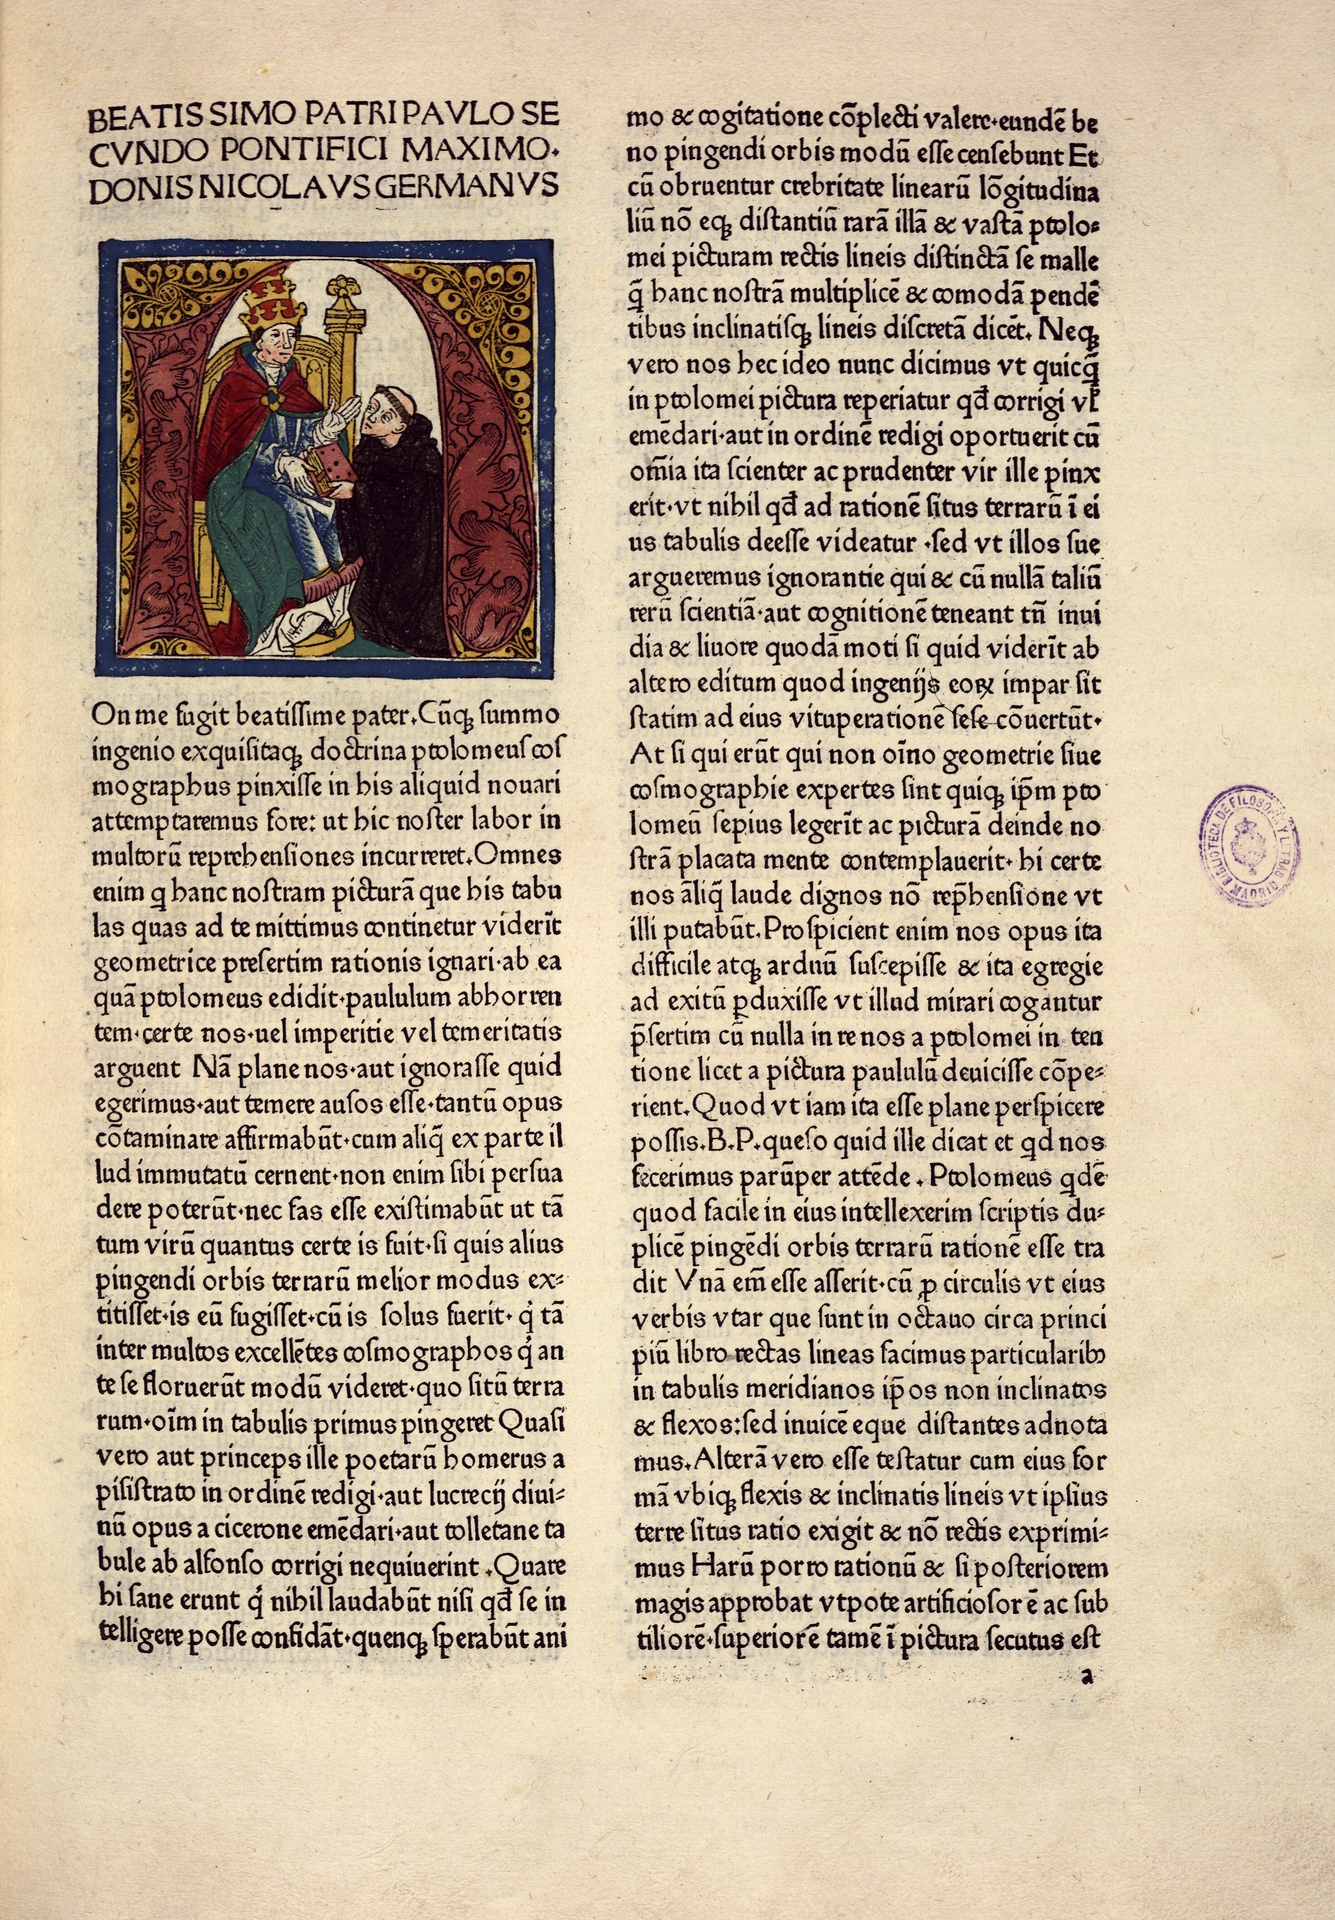 BEATISSIMO PATRI PAVLO SE
CVNDO PONTIFICI MAXIMO.
DONIS NICOLAVS GERMANVS
N
On me fugit beatissime pater.Cũqꝫ summo
ingenio exquisitaqꝫ doctrina ptolomeus cos
mographus pinxisse in his aliquid nouari
attemptaremus fore: ut hic noster labor in
multorũ reprehensiones incurreret.Omnes
enim q hanc nostram picturã que his tabu
las quas ad te mittimus continetur viderĩt
geometrice presertim rationis ignari·ab ea
quã ptolomeus edidit·paululum abhorren
tem·certe nos·uel imperitie vel temeritatis
arguent Nã plane nos·aut ignorasse quid
egerimus·aut temere ausos esse·tantũ opus
cõtaminare affirmabũt·cum aliq̃ ex parte il
lud immutatũ cernent·non enim sibi persua
dere poterũt·nec fas esse existimabũt ut tã
tum virũ quantus certe is fuit·si quis alius
pingendi orbis terrarũ melior modus ex⸗
titisset·is eũ fugisset·cũ is solus fuerit· q̇ tã
inter multos excellẽtes cosmographos q̇ an
te se floruerũt modũ videret·quo sitũ terra
rum·oĩm in tabulis primus pingeret Quasi
vero aut princeps ille poetarũ homerus a
pisistrato in ordinẽ redigi·aut lucrecij diui⸗
nũ opus a cicerone emẽdari·aut tolletane ta
bule ab alfonso corrigi nequiuerint .Quare
hi sane erunt q̇ nihil laudabũt nisi qd̃ se in
telligere posse confidãt·quenqꝫ sperabũt ani
mo & cogitatione cõplecti valere·eundẽ be
no pingendi orbis modũ esse censebunt Et
cũ obruentur crebritate linearũ lõgitudina
liũ nõ eqꝫ distantiũ rarã illã & vastã ptolo⸗
mei picturam rectis lineis distinctã se malle
q̃ hanc nostrã multiplicẽ & comodã pendẽ
tibus inclinatisqꝫ lineis discretã dicẽt. Neqꝫ
vero nos hec ideo nunc dicimus vt quicq̃
in ptolomei pictura reperiatur qd̃ corrigi vl̃
emẽdari·aut in ordinẽ redigi oportuerit cũ
om̃ia ita scienter ac prudenter vir ille pinx
erit·vt nihil qd̃ ad rationẽ situs terrarũ ĩ ei
us tabulis deesse videatur ·sed vt illos sue
argueremus ignorantie qui & cũ nullã taliũ
rerũ scientiã·aut cognitionẽ teneant tñ inui
dia & liuore quodã moti si quid viderĩt ab
altero editum quod ingenijs eoꝝ impar sit
statim ad eius vituperationẽ sese cõuertũt·
At si qui erũt qui non oĩno geometrie siue
cosmographie expertes sint quiqꝫ ip̃m pto
lomeũ sepius legerĩt ac picturã deinde no
strã placata mente contemplauerit· hi certe
nos ãliq̃ laude dignos nõ rep̃hensione vt
illi putabũt.Prospicient enim nos opus ita
difficile atqꝫ arduũ suscepisse & ita egregie
ad exitũ ꝑduxisse vt illud mirari cogantur
p̃sertim cũ nulla in re nos a ptolomei in ten
tione licet a pictura paululũ deuicisse cõpe⸗
rient.Quod vt iam ita esse plane perspicere
possis.B.P.queso quid ille dicat et qd nos
fecerimus parũper attẽde . Ptolomeus qdẽ
quod facile in eius intellexerim scriptis du⸗
plicẽ pingẽdi orbis terrarũ rationẽ esse tra
dit Vnã em̃ esse asserit·cũ ꝓ circulis vt eius
verbis vtar que sunt in octauo circa princi
piũ libro rectas lineas facimus particularibꝰ
in tabulis meridianos ip̃os non inclinatos
& flexos:sed inuicẽ eque distantes adnota
mus.Alterã vero esse testatur cum eius for
mã vbiqꝫ flexis & inclinatis lineis vt ipsius
terre situs ratio exigit & nõ rectis exprimi⸗
mus Harũ porro rationũ & si posteriorem
magis approbat vtpote artificiosor ẽ ac sub
tiliorẽ·superiorẽ tamẽ ĩ pictura secutus est
a
BIBLIOTECA DE FILOSOFIA Y LETRAS